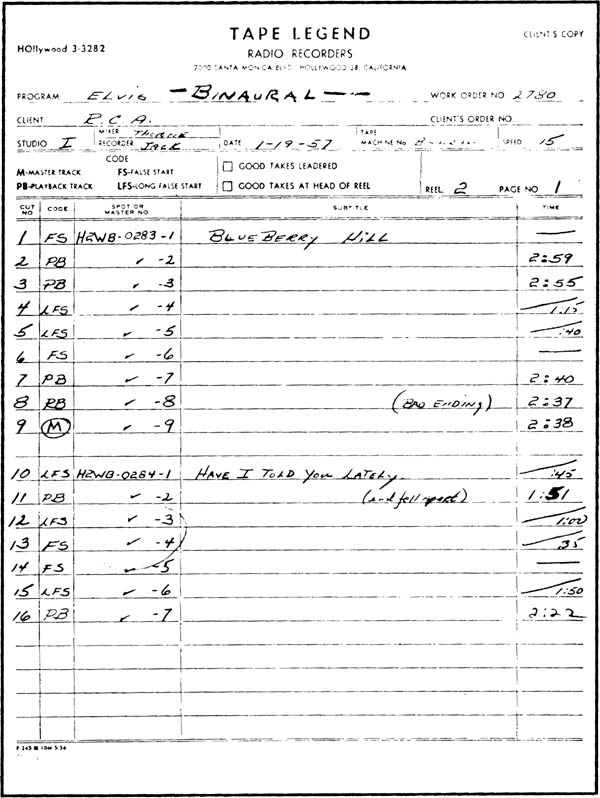 TAPE LEGEND
CLIENT'S COPY
HOllywood 3-3282
RADIO RECORDERS
7000 SANTA MONICA BLVD., HOLLYWOOD 38, CALIFORNIA
PROGRAM Elvis — BINAURAL — WORK ORDER NO 2780
CLIENT R.C.A. CLIENT'S ORDER NO.
STUDIO I MIXER THORNE RECORDER JACK DATE 1-19-57 TAPE MACHINE No SPEED 15
CODE
M-MASTER TRACK FS-FALSE START GOOD TAKES LEADERED
PB-PLAYBACK TRACK LFS-LONG FALSE START GOOD TAKES AT HEAD OF REEL REEL 2 PAGE NO 1
CUT NO CODE SPOT OR MASTER NO SUBTITLE TIME
1 FS H2WB-0283-1 BLUEBERRY HILL —
2 PB ✓ -2 2:59
3 PB ✓ -3 2:55
4 LFS ✓ -4 1:15
5 LFS ✓ -5 :40
6 FS ✓ -6 —
7 PB ✓ -7 2:40
8 PB ✓ -8 (BAD ENDING) 2:37
9 M ✓ -9 2:38
10 LFS H2WB-0284-1 HAVE I TOLD YOU LATELY :45
11 PB ✓ -2 (end fell apart) 1:51
12 LFS ✓ -3 1:00
13 FS ✓ -4 35
14 FS ✓ -5 —
15 LFS ✓ -6 1:50
16 PB ✓ -7 2:22